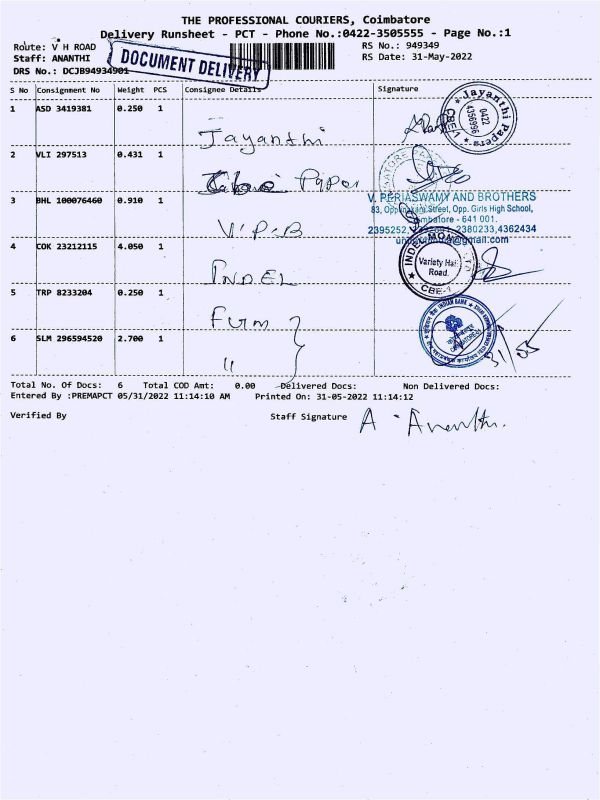 THE PROFESSIONAL COURIERS, Coimbatore
Delivery Runsheet - PCT - Phone No.:0422-3505555 - Page No.:1
Route: V H ROAD
RS No.: 949349
Staff: ANANTHI
RS Date: 31-May-2022
DRS No.: DCJB94934901
DOCUMENT DELIVERY
S No Consignment No Weight PCS Consignee Details Signature
1 ASD 3419381 0.250 1 Jayanthi
Jayanthi Papers
CBE-1
0422
4356996
2 VLI 297513 0.431 1 Paper
3 BHL 100076460 0.910 1 V.P.B
V. PERIASWAMY AND BROTHERS
Street, Opp. Girls High School,
Coimbatore - 641 001.
2380233,4362434
@gmail.com
4 COK 23212115 4.050 1 INDEL
Variety Hall
Road.
CBE-1
5 TRP 8233204 0.250 1 Furm
INDIAN BANK
6 SLM 296594520 2.700 1 "
31/05
Total No. Of Docs: 6 Total COD Amt: 0.00 Delivered Docs: Non Delivered Docs:
Entered By :PREMAPCT 05/31/2022 11:14:10 AM Printed On: 31-05-2022 11:14:12
Verified By Staff Signature A. Ananthi.